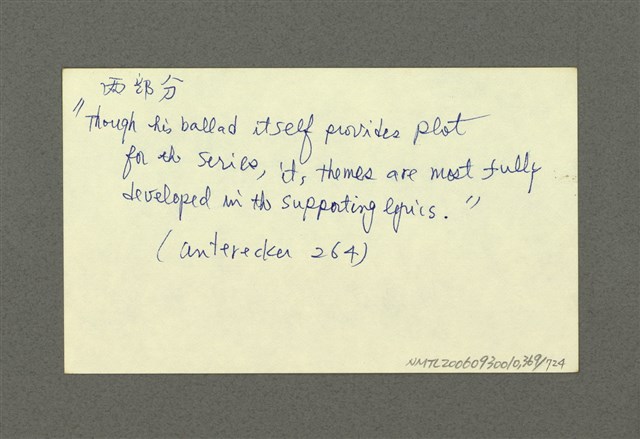 兩部分
"Though his ballad itself provides plot
for th series, its themes are most fully
developed in th supporting lyrics."
(unterecker 264)
NMTL20060930010,369/724